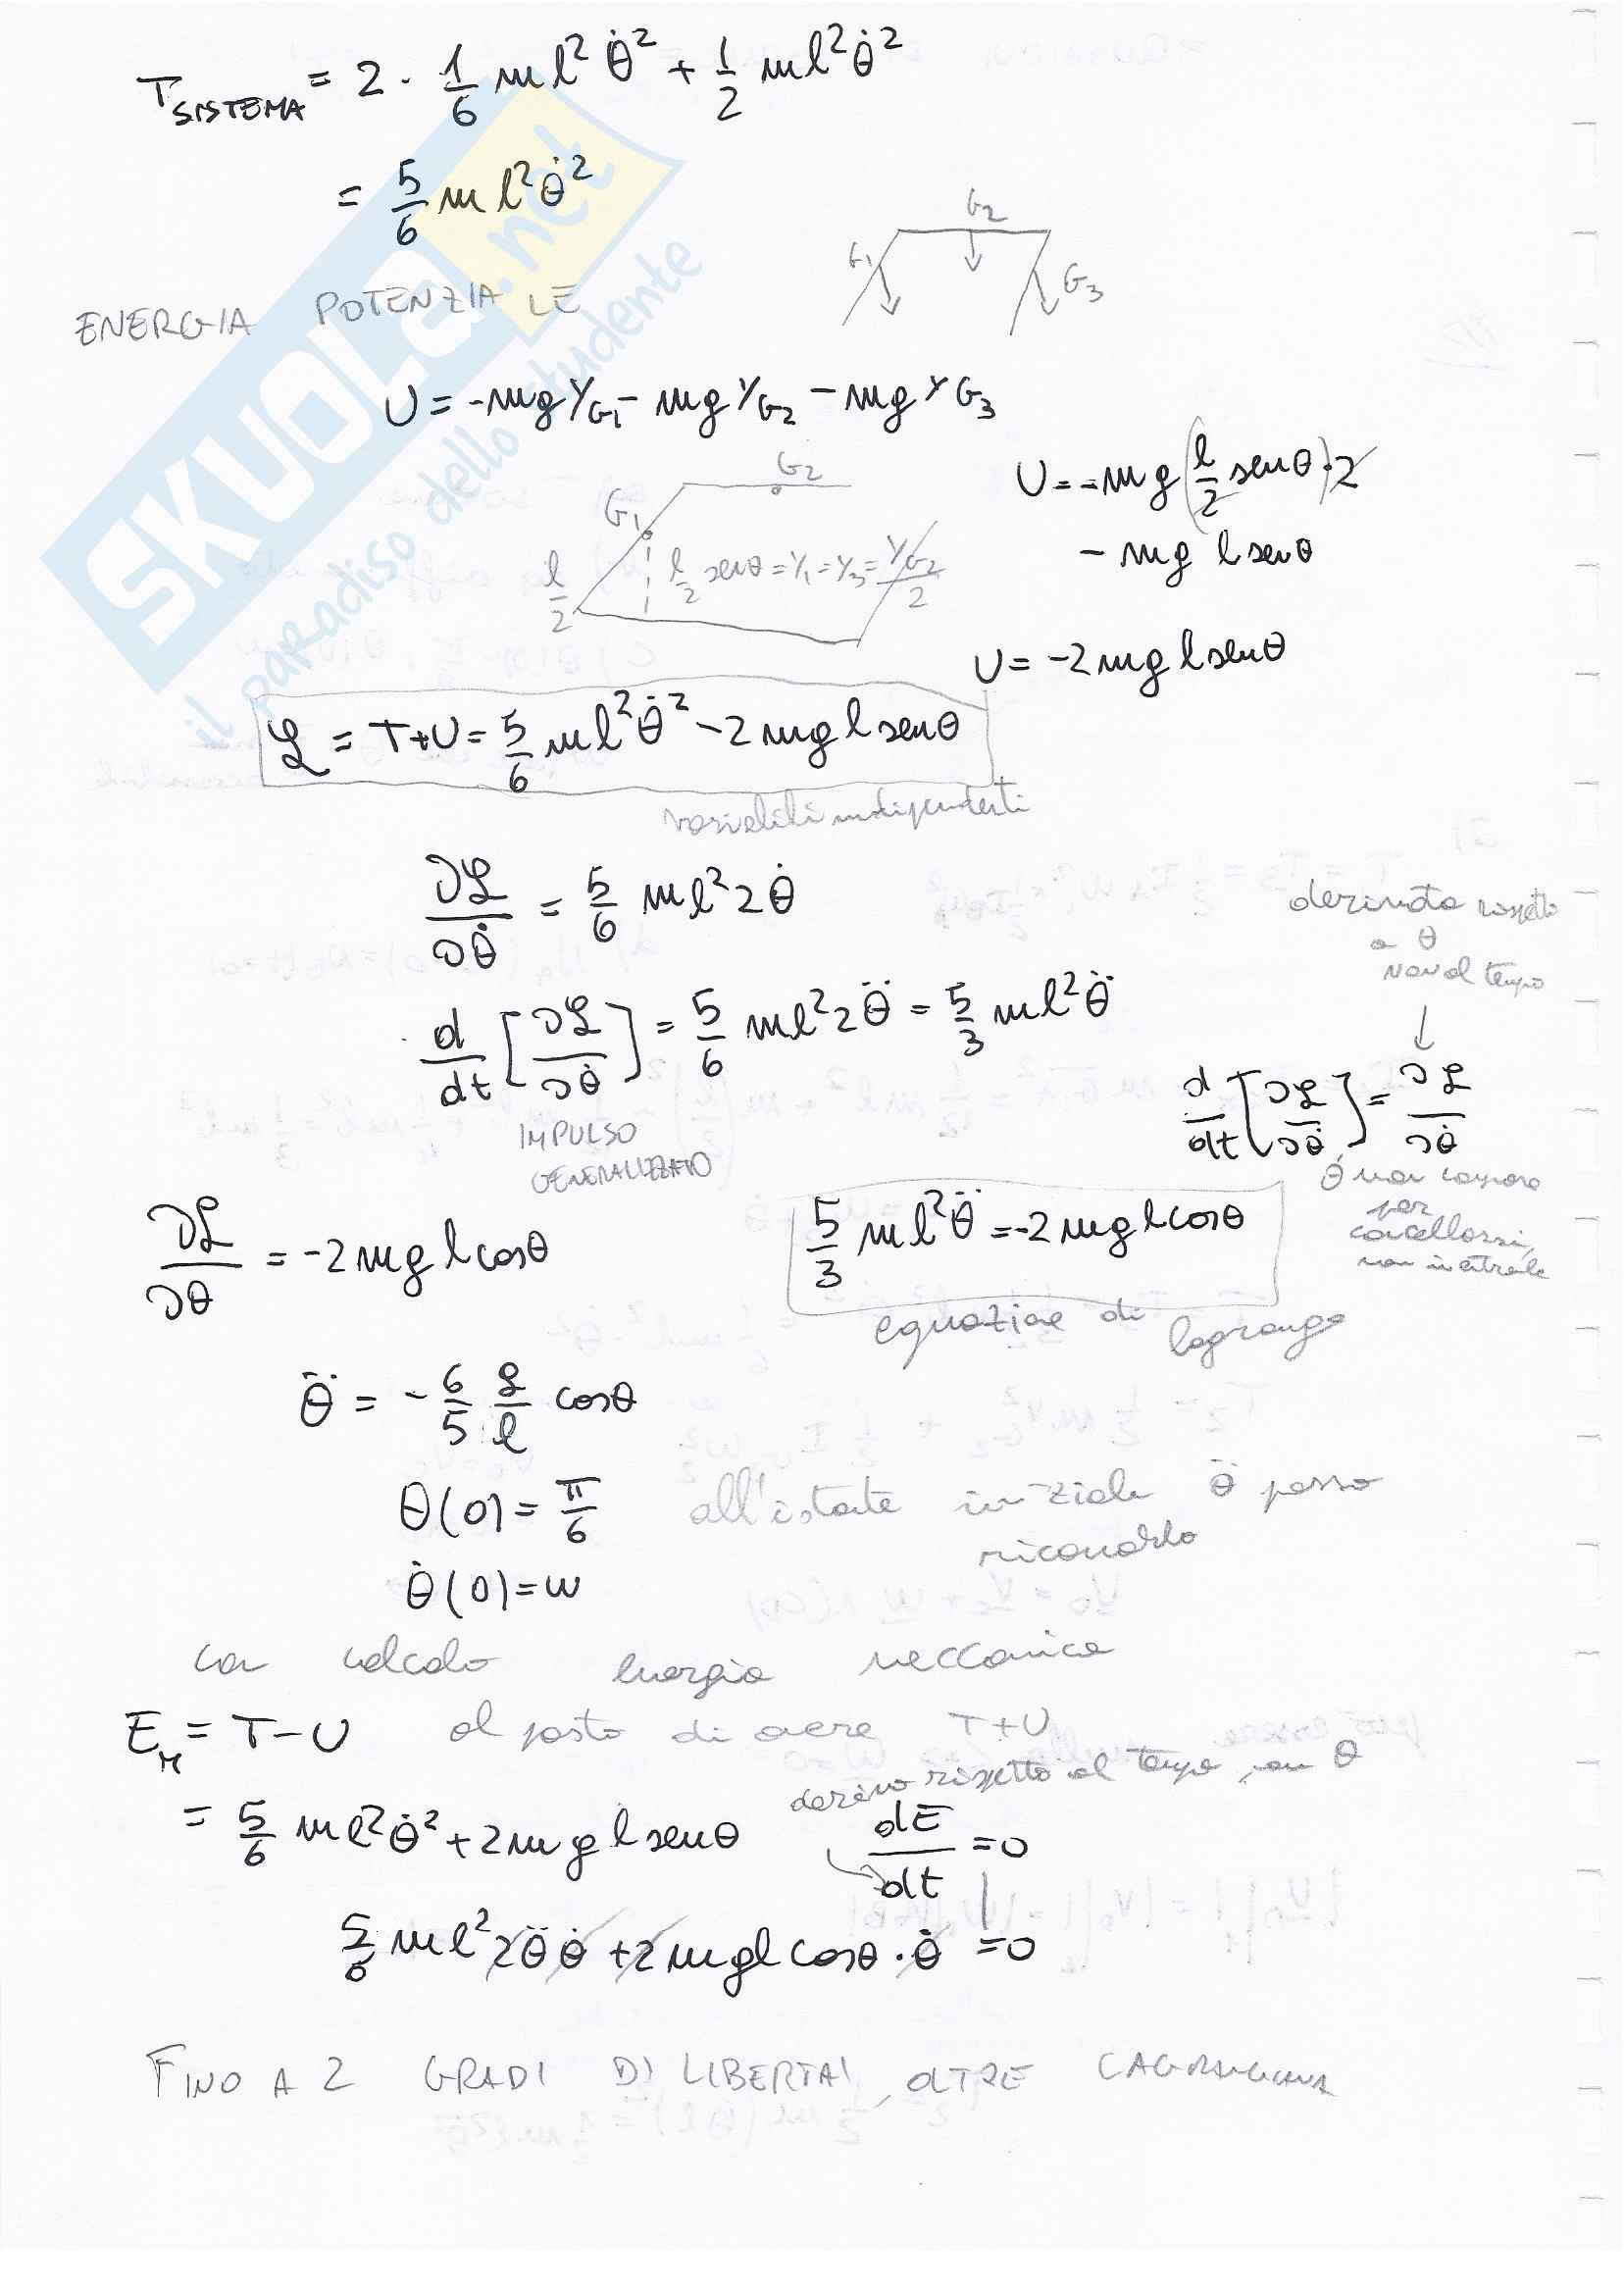 T_SISTEMA = 2 · 1/6 m l² θ̇² + 1/2 m l² θ̇²
= 5/6 m l² θ̇²
G₂
G₁
G₃
ENERGIA POTENZIALE
U = -mg y_G₁ - mg y_G₂ - mg y_G₃
U = -mg (l/2 senθ)·2
- mg l senθ
G₂
G₁
l/2
l/2 senθ = y₁ = y₃ = y_G₂/2
U = -2mg l senθ
ℒ = T+U = 5/6 m l² θ̇² - 2mg l senθ
variabili indipendenti
∂ℒ/∂θ̇ = 5/6 m l² 2θ̇
derivata rispetto
a θ
non al tempo
d/dt [∂ℒ/∂θ̇] = 5/6 m l² 2θ̈ = 5/3 m l² θ̈
IMPULSO
GENERALIZZATO
d/dt [∂ℒ/∂θ̇] = ∂ℒ/∂θ
θ̇ non compare
per
cancellarsi,
∂ℒ/∂θ = -2mg l cosθ
5/3 m l² θ̈ = -2mg l cosθ
equazione di lagrange
θ̈ = - 6/5 g/l cosθ
θ(0) = π/6
all'istante iniziale θ̈ posso
ricavarlo
θ̇(0) = w
con calcolo energia meccanica
E_M = T - U al posto di avere T+U
derivo rispetto al tempo, non θ
= 5/6 m l² θ̇² + 2mg l senθ
dE/dt = 0
5/6 m l² 2θ̈ θ̇ + 2mgl cosθ · θ̇ = 0
FINO A 2 GRADI DI LIBERTA', OLTRE LAGRANGIANA
SKUOLA.net
il paradiso dello studente